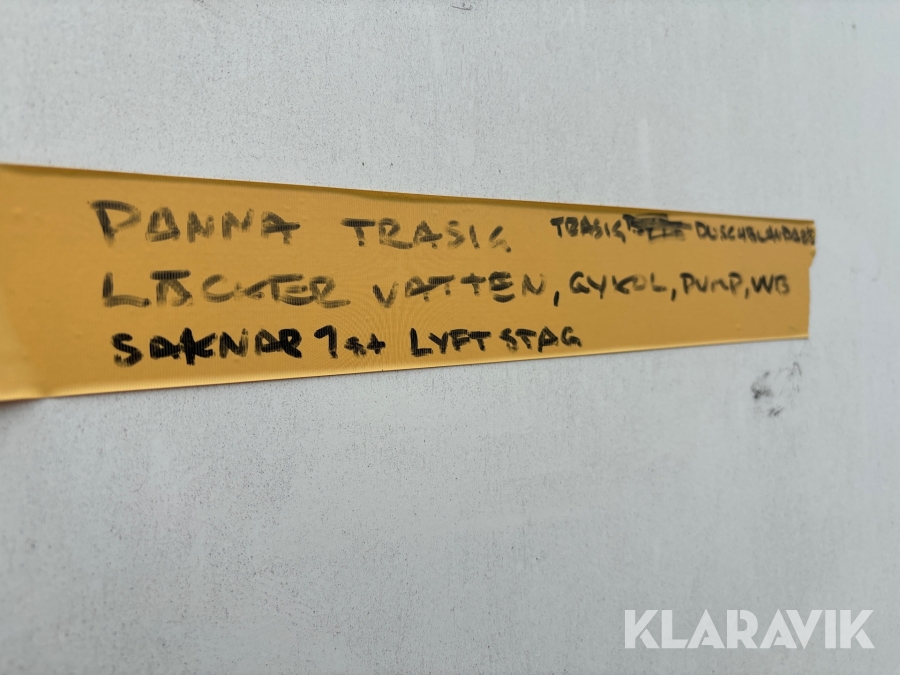 PANNA TRASIG TRASIG DUSCHBLANDARE
LÄCKER VATTEN, GYKOL, PUMP, WB
SAKNAR 1st LYFTSTAG
KLARAVIK